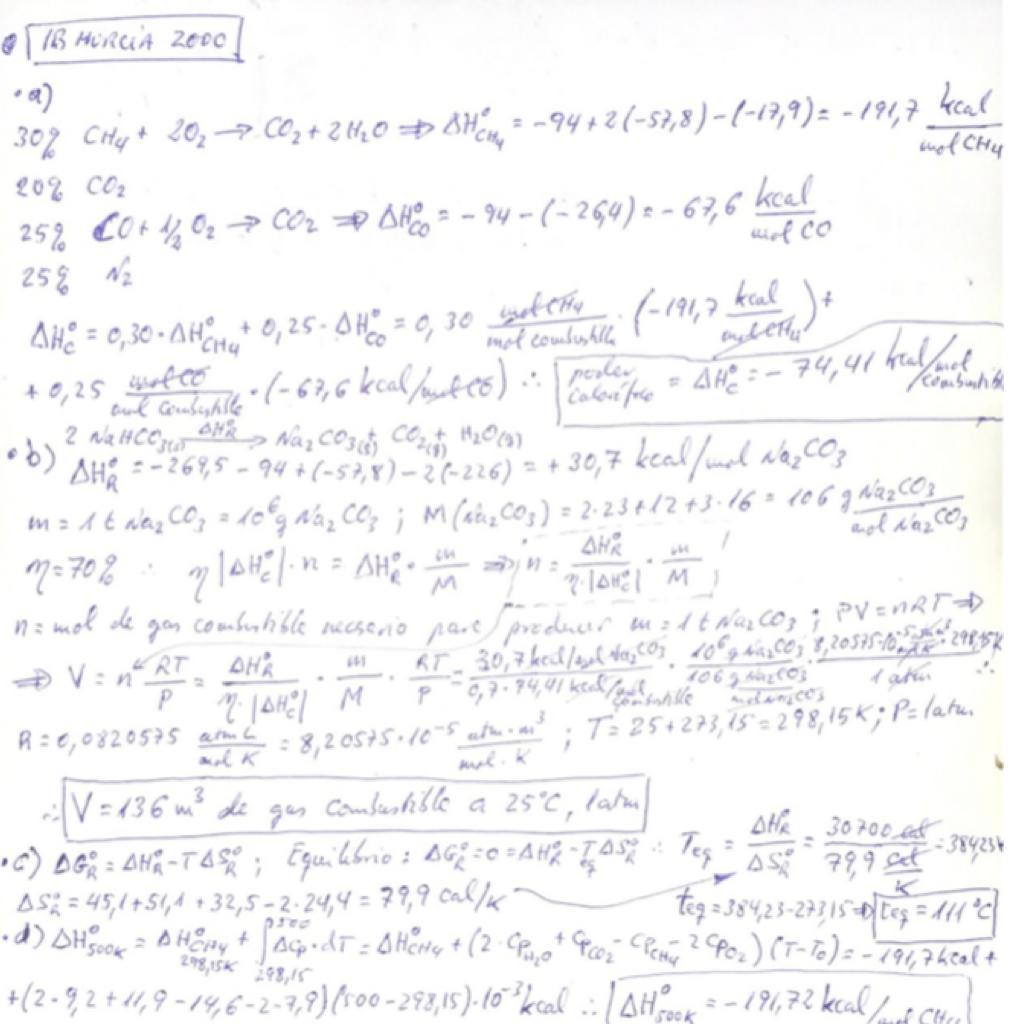 IB MURCIA 2000
• a)
30% CH₄ + 2O₂ → CO₂ + 2H₂O ⇒ ΔH°CH₄ = -94 + 2(-57,8) - (-17,9) = -191,7 kcal/mol CH₄
20% CO₂
25% CO + 1/2 O₂ → CO₂ ⇒ ΔH°CO = -94 - (-26,4) = -67,6 kcal/mol CO
25% N₂
ΔH°C = 0,30 · ΔH°CH₄ + 0,25 · ΔH°CO = 0,30 mol CH₄/mol combustible · (-191,7 kcal/mol CH₄) +
+ 0,25 mol CO/mol combustible · (-67,6 kcal/mol CO) ∴ poder calorífico = ΔH°C = -74,41 kcal/mol combustible
• b) 2 NaHCO₃(s) ΔH°R → Na₂CO₃(s) + CO₂(g) + H₂O(g)
ΔH°R = -269,5 - 94 + (-57,8) - 2(-226) = +30,7 kcal/mol Na₂CO₃
m = 1 t Na₂CO₃ = 10⁶ g Na₂CO₃ ; M(Na₂CO₃) = 2·23+12+3·16 = 106 g Na₂CO₃/mol Na₂CO₃
η = 70% ∴ η |ΔH°C| · n = ΔH°R · m/M ⇒ n = ΔH°R/η·|ΔH°C| · m/M
n = mol de gas combustible necesario para producir m = 1 t Na₂CO₃ ; PV = nRT ⇒
⇒ V = n RT/P = ΔH°R/η·|ΔH°C| · m/M · RT/P = 30,7 kcal/mol Na₂CO₃/0,7·74,41 kcal/mol combustible · 10⁶ g Na₂CO₃/106 g Na₂CO₃/mol Na₂CO₃ · 8,20575·10⁻⁵ atm·m³/mol·K · 298,15K/1 atm ∴
R = 0,0820575 atm L/mol K = 8,20575·10⁻⁵ atm·m³/mol·K ; T = 25 + 273,15 = 298,15 K ; P = 1 atm
∴ V = 136 m³ de gas combustible a 25°C, 1 atm
• c) ΔG°R = ΔH°R - TΔS°R ; Equilibrio: ΔG°R = 0 = ΔH°R - Teq ΔS°R ∴ Teq = ΔH°R/ΔS°R = 30700 cal/79,9 cal/K = 384,23K
ΔS°R = 45,1 + 51,1 + 32,5 - 2·24,4 = 79,9 cal/K teq = 384,23 - 273,15 ⇒ teq = 111°C
• d) ΔH°500K = ΔH°CH₄ 298,15K + ∫ 298,15 500 ΔCp · dT = ΔH°CH₄ + (2·CpH₂O + CpCO₂ - CpCH₄ - 2CpO₂)(T-T₀) = -191,7 kcal +
+ (2·9,2 + 11,9 - 14,6 - 2·7,9)(500 - 298,15)·10⁻³ kcal ∴ ΔH°500K = -191,72 kcal/mol CH₄